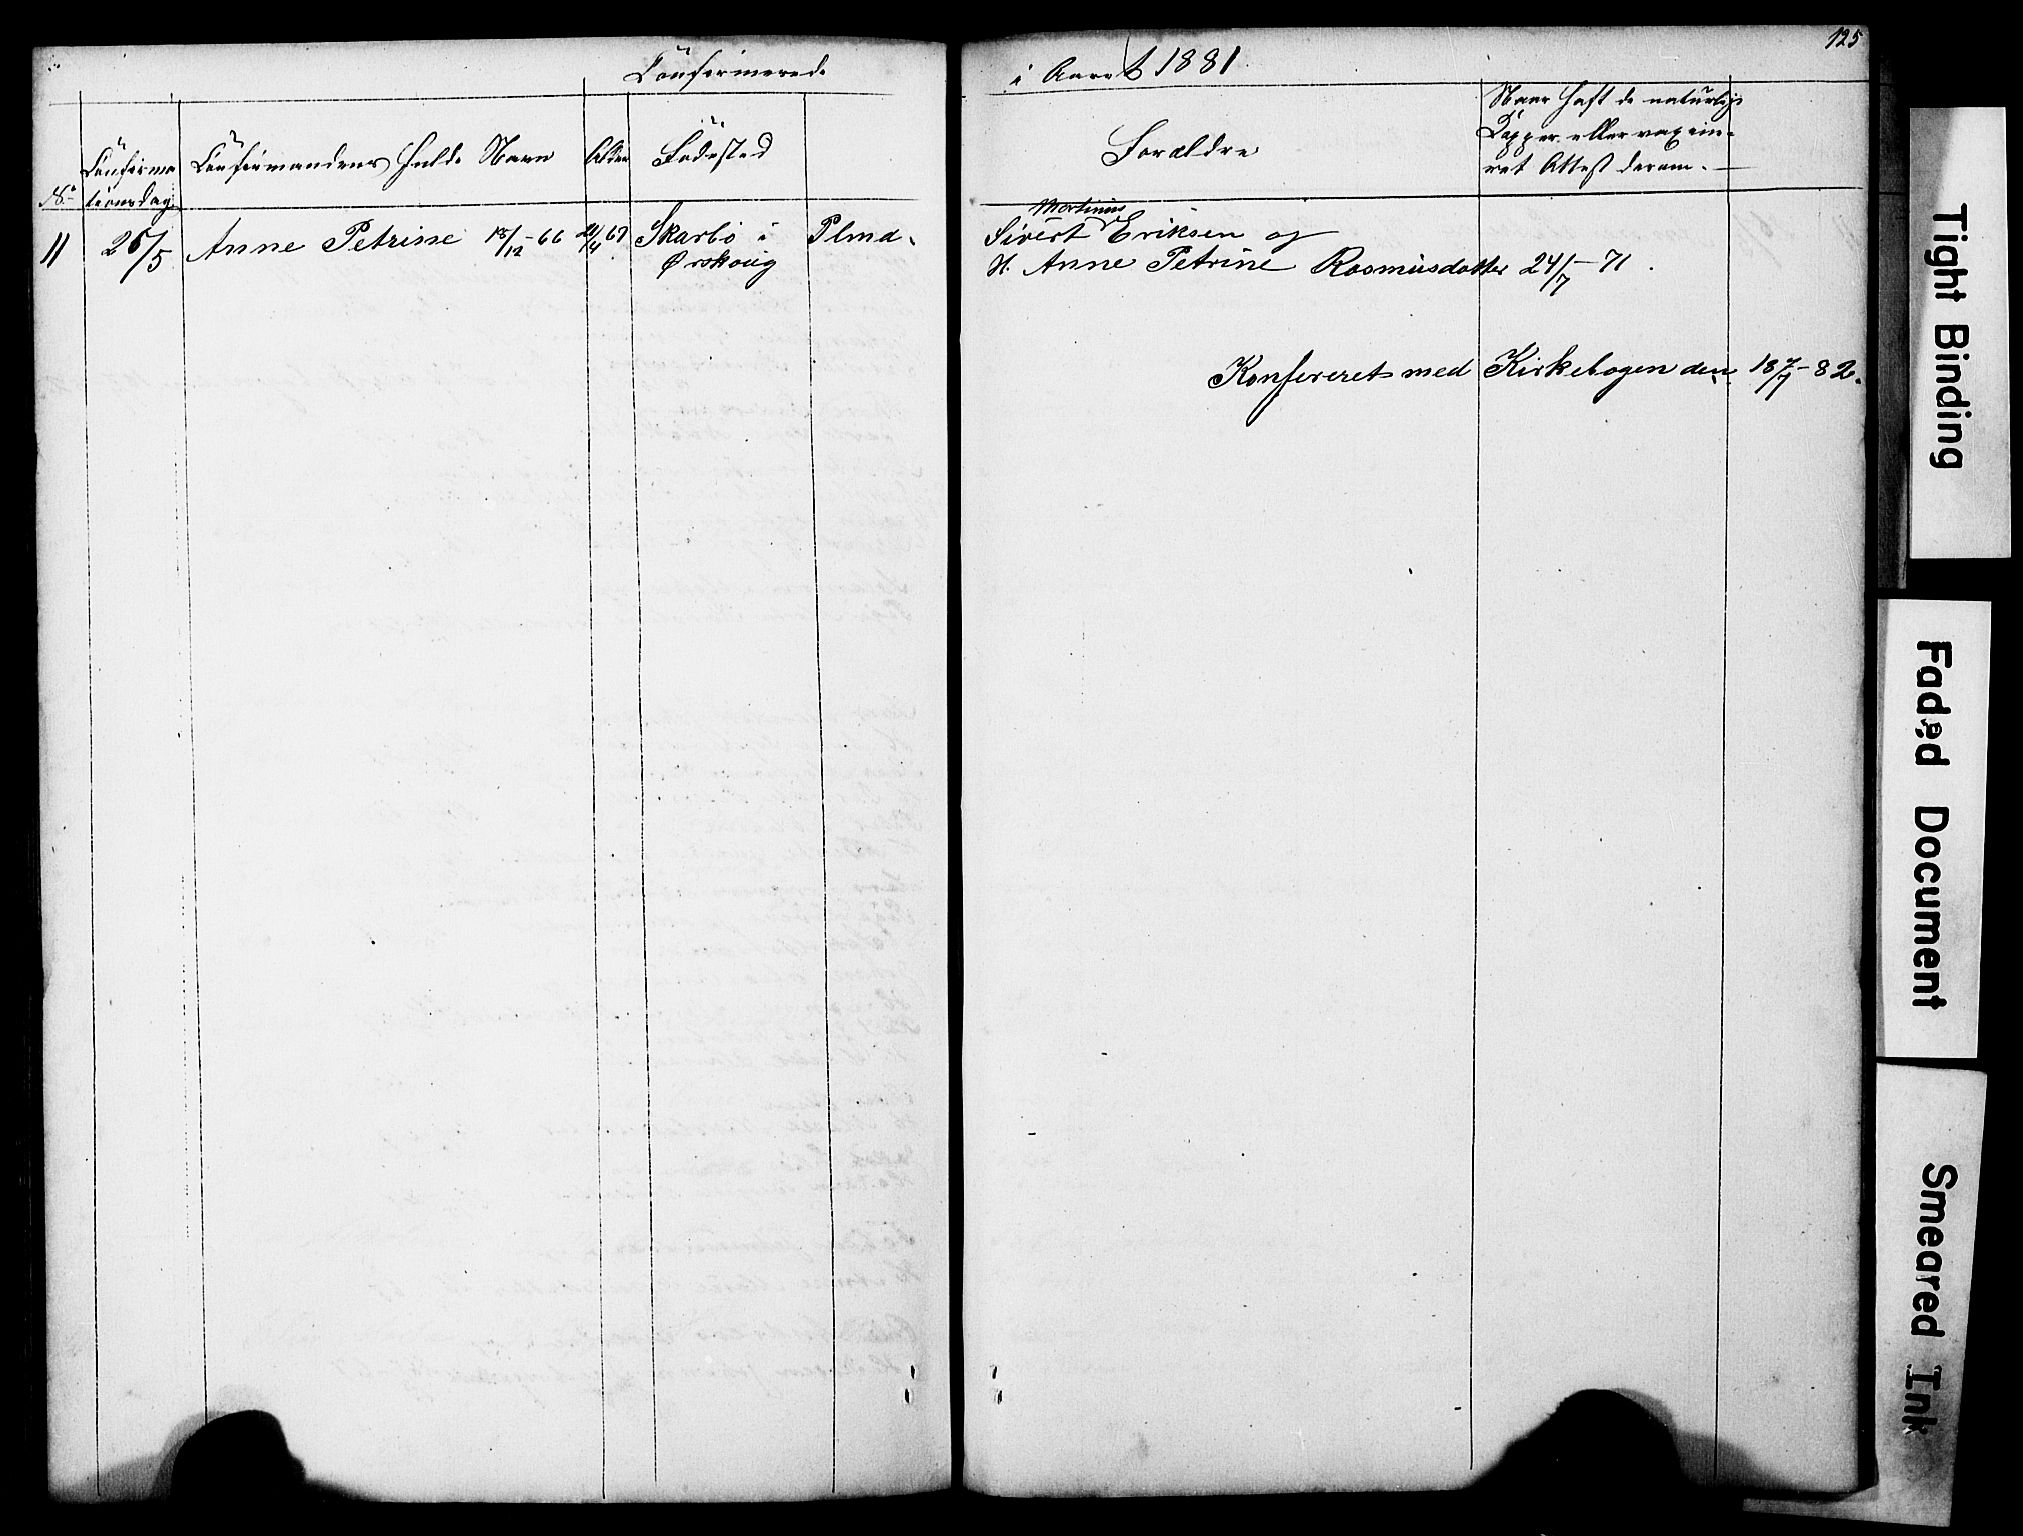 Confirmerede
i Aaret 1881
125
No
Confirma
tionsdag
Confirmandens fulde Navn
Alder
Födested
Forældre
Naar haft de naturlige
Kopper eller vaxcin-
ret Attest derom.
11
26/5
Anne Petrine 18/12-66
21/4 67
Skarbö i
Ørskoug
Plmd.
Martinus
Sivert Eriksen og
H. Anne Petrine Rasmusdatter
24/7-71.
Konfereret med Kirkebogen den 18/7-82.
Tight Binding
Faded Document
Smeared Ink